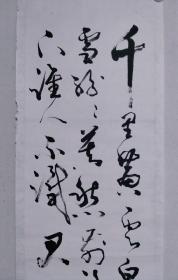 千里黄云白
雪纷〻莫愁前路
下谁人不识君